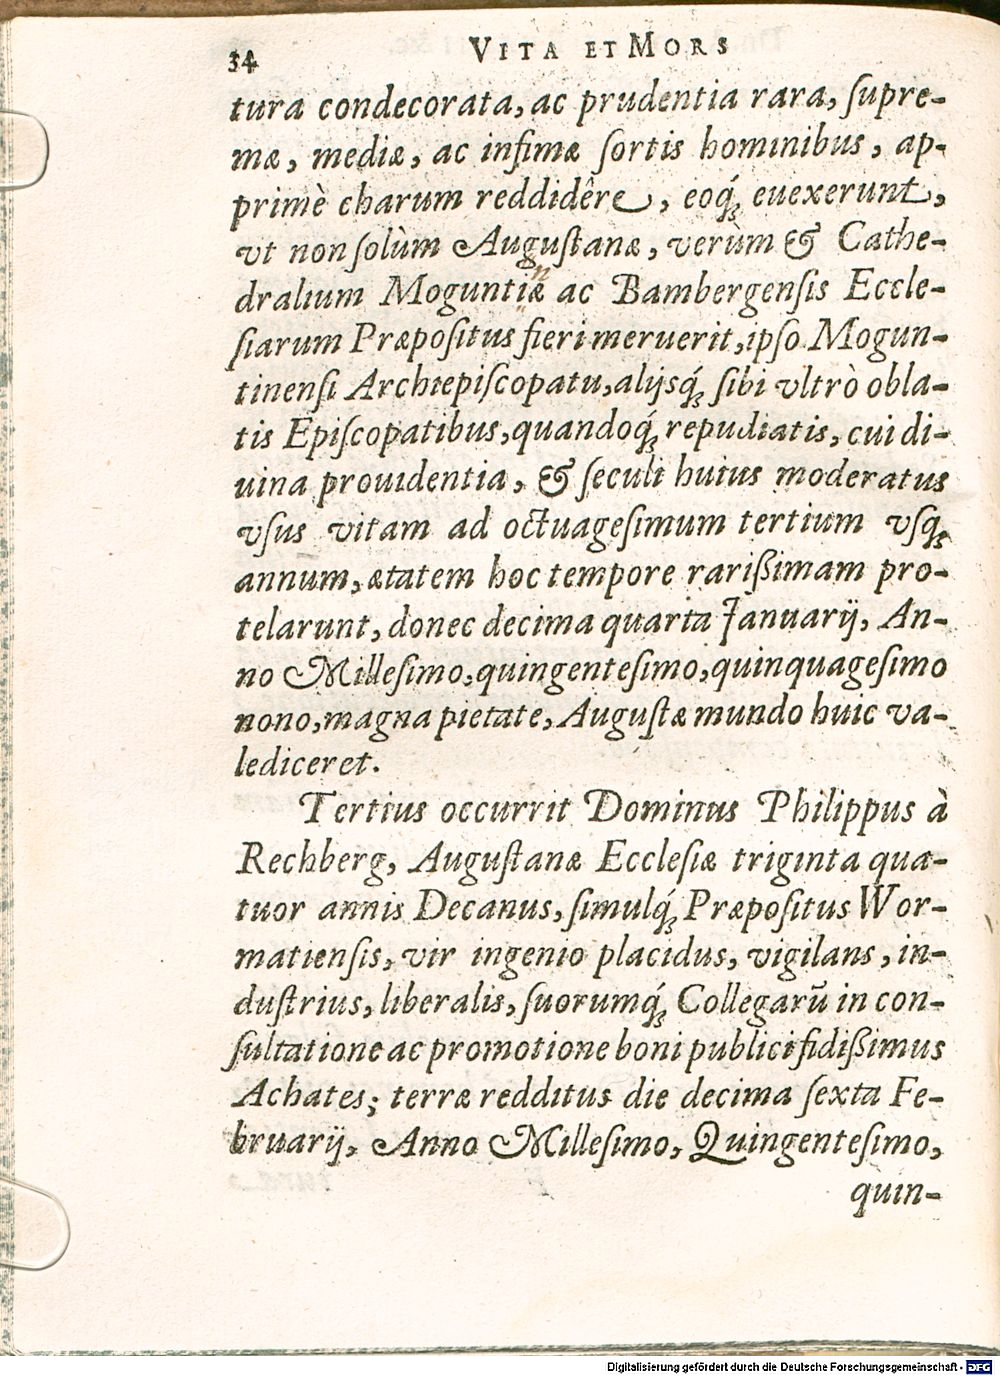 34 VITA ET MORS
tura condecorata, ac prudentia rara, ſupre-
mæ, mediæ, ac infimæ ſortis hominibus, ap-
primè charum reddidêre, eoq́; euexerunt,
vt non ſolùm Auguſtanæ, verùm & Cathe-
n
dralium Moguntiæ ac Bambergenſis Eccle-
ſiarum Præpoſitus fieri meruerit, ipſo Mogun-
tinenſi Archiepiſcopatu, alijsq́; ſibi vltrò obla-
tis Epiſcopatibus, quandoq́; repudiatis, cui di-
uina prouidentia, & ſeculi huius moderatus
vſus vitam ad octuageſimum tertium vſq;
annum, ætatem hoc tempore rarißimam pro-
telarunt, donec decima quarta Januarij, An-
no Milleſimo, quingenteſimo, quinquageſimo
nono, magna pietate, Auguſtæ mundo huic va-
lediceret.
Tertius occurrit Dominus Philippus à
Rechberg, Auguſtanæ Eccleſiæ triginta qua-
tuor annis Decanus, ſimulq́; Præpoſitus Wor-
matienſis, vir ingenio placidus, vigilans, in-
duſtrius, liberalis, ſuorumq́; Collegarũ in con-
ſultatione ac promotione boni publici fidißimus
Achates; terræ redditus die decima ſexta Fe-
bruarij, Anno Milleſimo, Quingenteſimo,
quin-
Digitalisierung gefördert durch die Deutsche Forschungsgemeinschaft - DFG